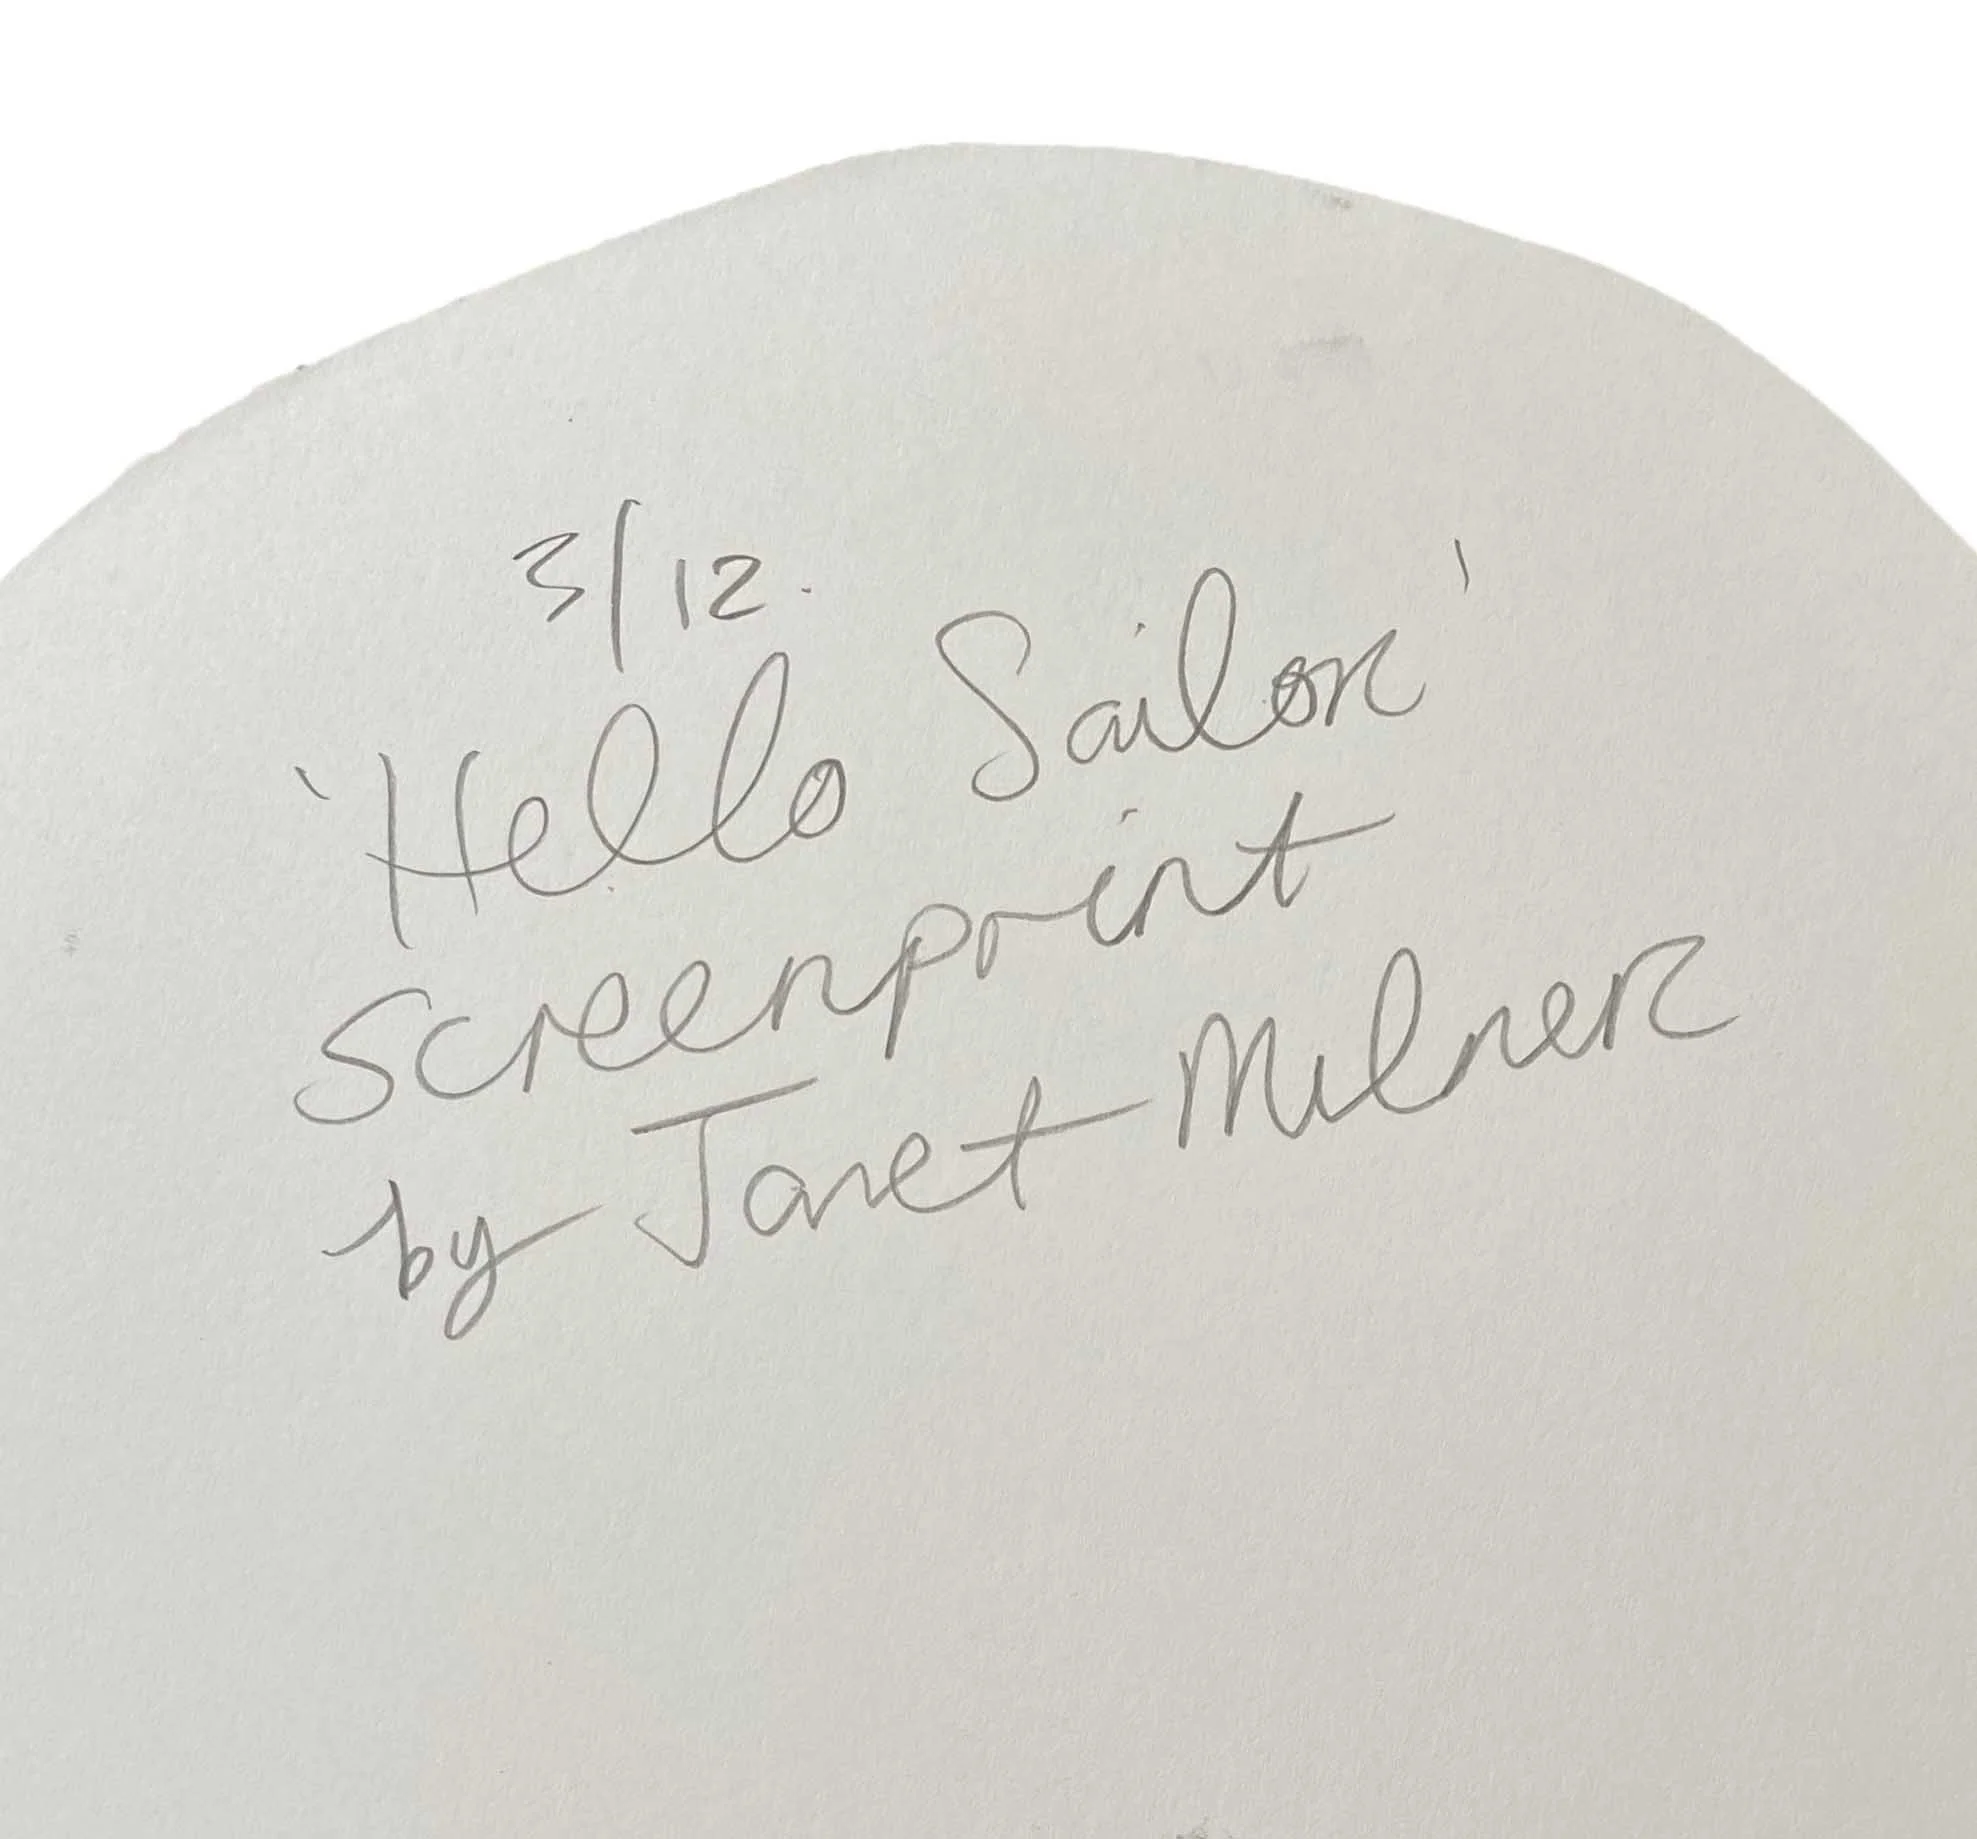 3/12.
'Hello Sailor'
screenprint
by Janet Milner